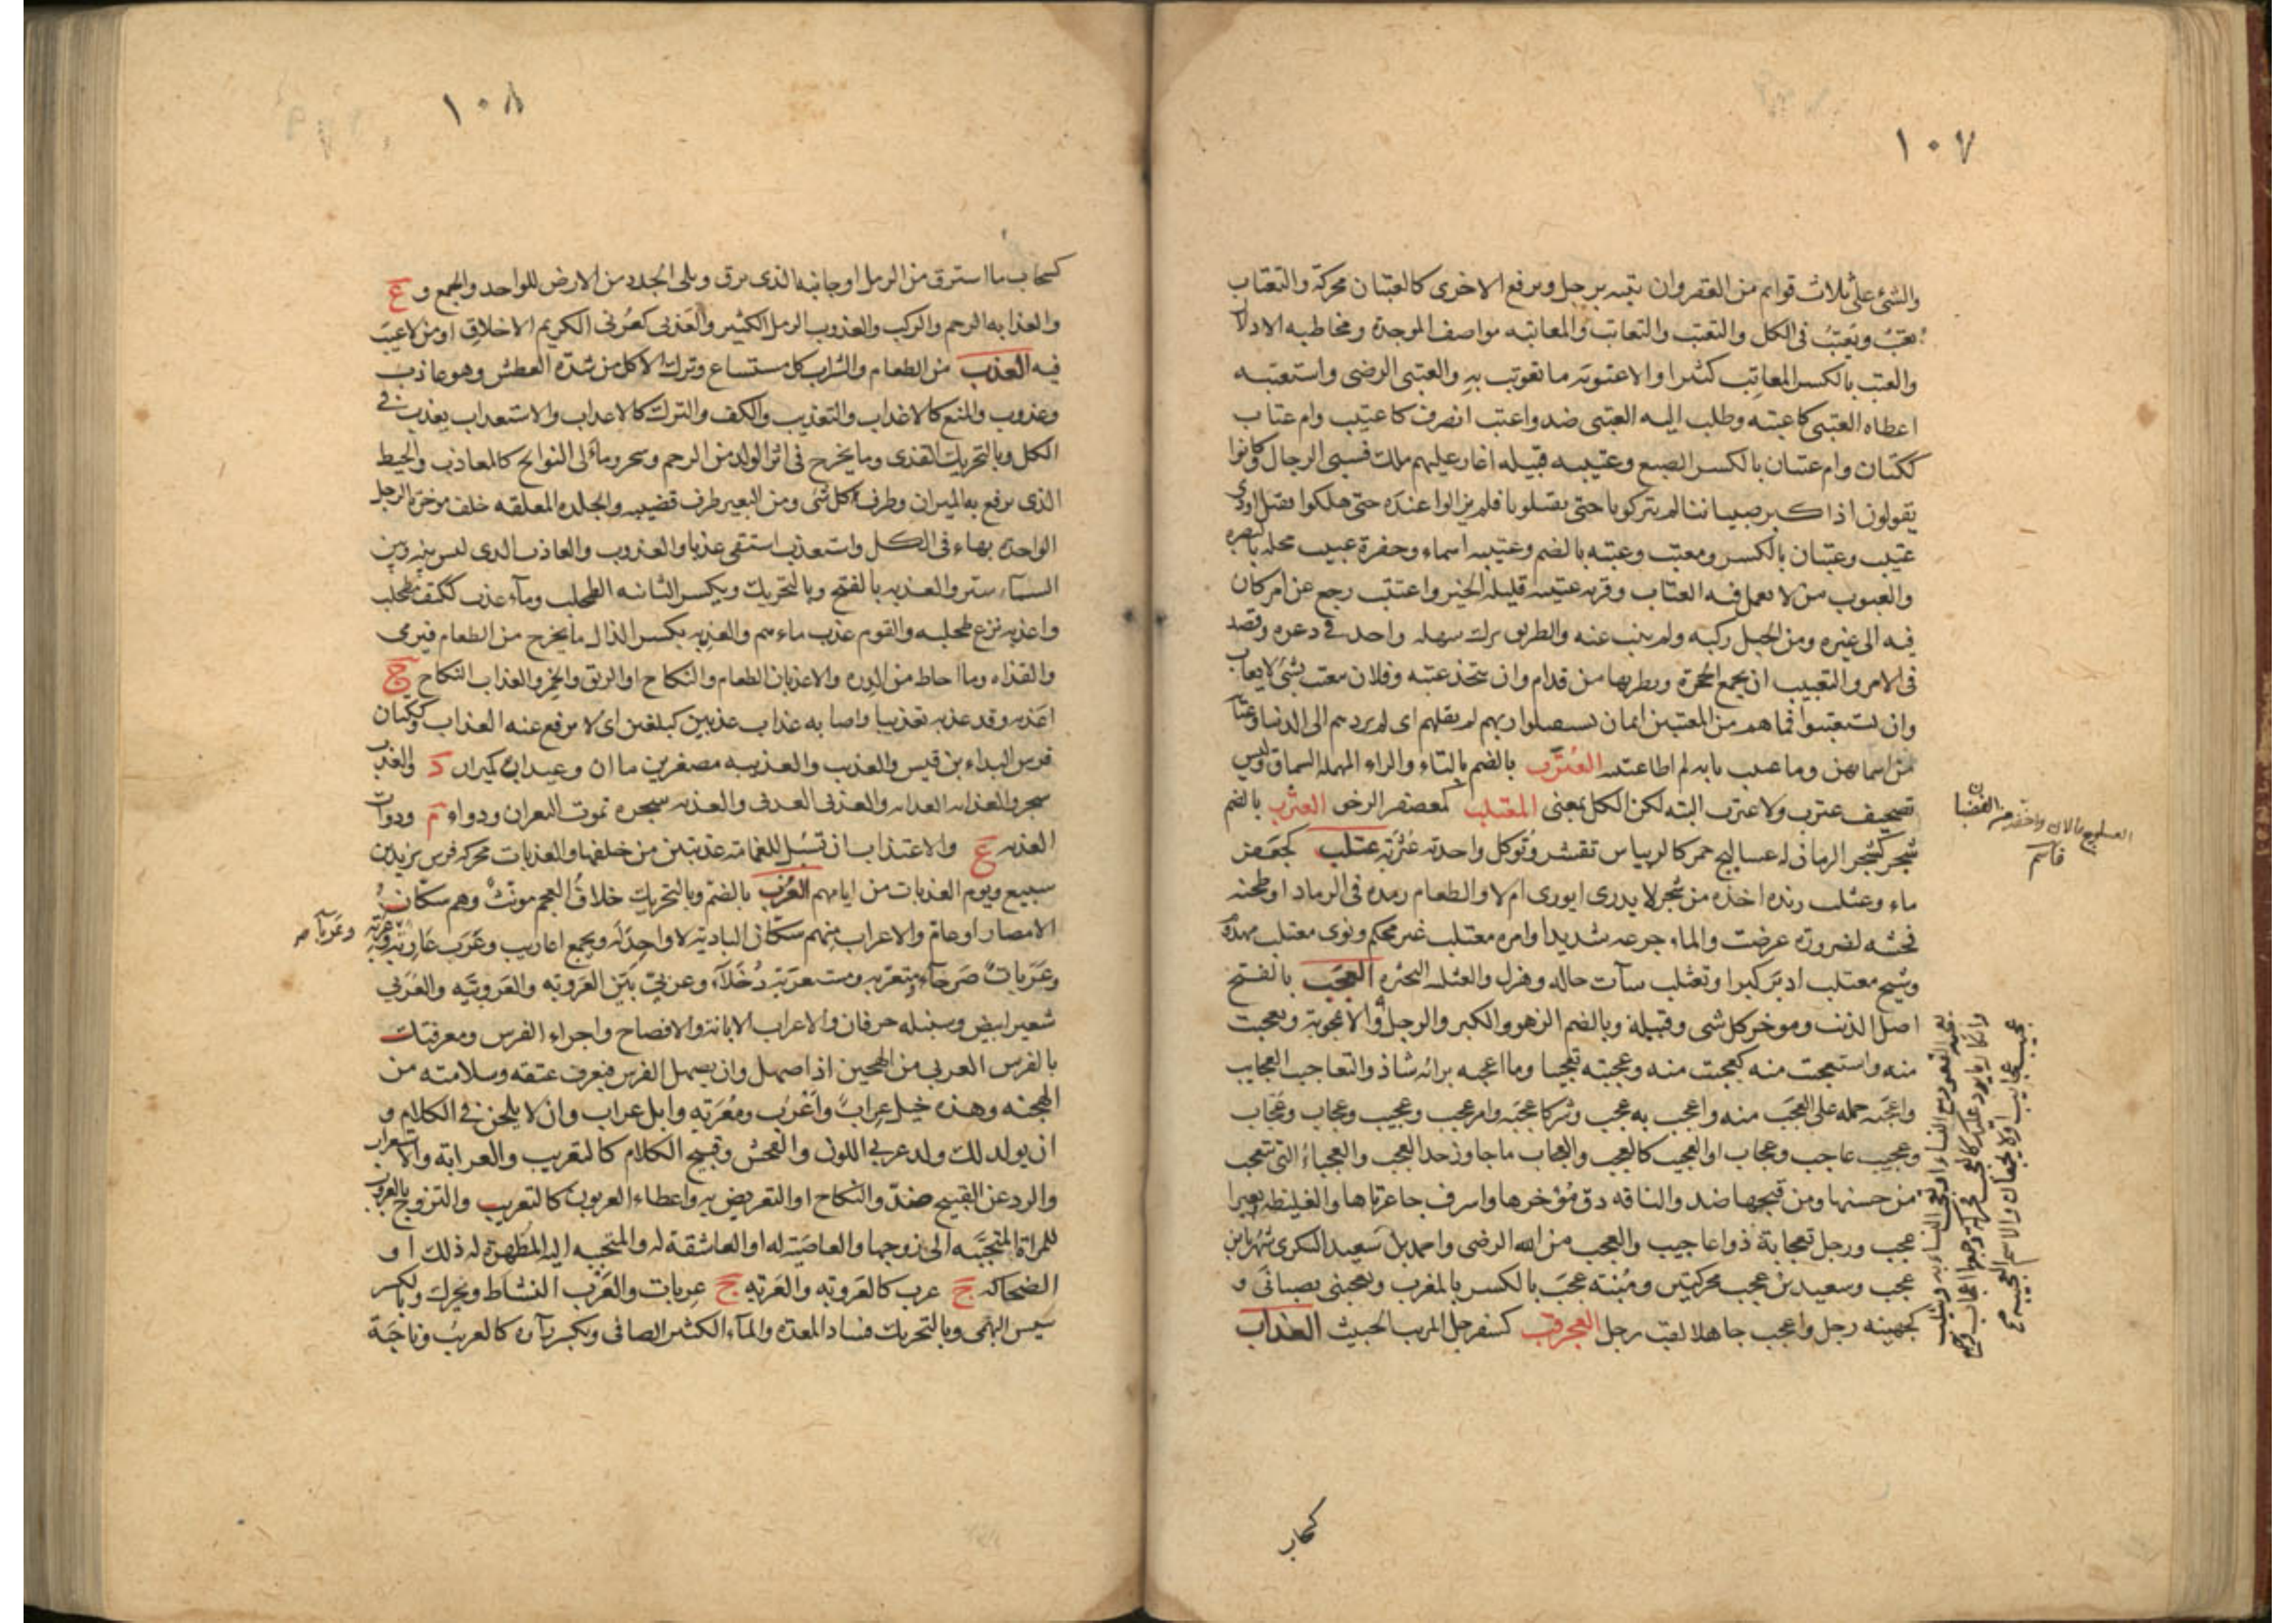 ١٠٧
والمشي على ثلاث قوائم من العقر وان تثب برجل وترفع الاخرى كالعتبان محركة والتعتاب
يعتب ويعتب في الكل والتعتب والتعاتب والمعاتبه تواصف الموجدة ومخاطبه الادلال
والعتب بالكسر المعاتب كثيرا والاعتوبة ما تعوتب به والعتبى الرضى واستعتبه
اعطاه العتبى كاعتبه وطلب اليه العتبى ضد واعتب انصرف كاعتتب وام عتاب
ككتان وام عتبان بالكسر الضبع وعتيب قبيله اغار عليهم ملك فسبى الرجال وكانوا
يقولون اذا كبر صبياننا لم يتركونا حتى يفتكونا فلم يزالوا عنده حتى هلكوا فقيل اودى
عتيب وعتبان بالكسر ومعتب وعتبه بالضم وعتيبه اسماء وحفرة عتيب محله بالبصره
والعتوب من لا يعمل فيه العتاب وقريه عتيبه قليله الخير واعتتب رجع عن امر كان
فيه الى غيره ومن الجبل ركبه ولم ينب عنه والطريق ترك سهله واخذ في وعره وقصد
في الامر والتعتيب ان تجمع الحجزة وتطويها من قدام وان تتخذ عتبه وفلان معتب بشئ لايعاب
وان يستعتبوا فما هم من المعتبين اي ان يستقيلوا ربهم لم يقلهم اى لم يردهم الى الدنيا وعتاب
من اسمائهن وما عتبت بابه لم اطا عتبته العترب بالضم بالتاء والراء المهمله السماق وليس
تصحيف عنزب ولا عبرب البته لكن الكل بمعنى المعتلب كمعصفر الرخو العثرب بالضم
شجر كشجر الرمان له عساليج حمر كالريباس تقشر وتوكل واحدته عثربة عثلب كجعفر
ماء وعثلب زنده اخذه من شجر لا يدرى ايورى ام لا والطعام رمده في الرماد او طحنه
فجشه لضرورة عرضت والماء جرعه شديدا وامره معثلب غير محكم ونوى معثلب مهدم
وشيخ معثلب ادبر كبرا وتعثلب ساءت حاله وهزل والعثلبه البحثره العجب بالفتح
اصل الذنب وموخر كل شى وقبيلة وبالضم الزهو والكبر والرجل والاعجوبة وتعجبت
منه واستعجبت منه كعجبت منه وعجبته تعجيبا وما اعجبه برائه شاذ والتعاجيب العجايب
واعجبه حمله على العجب منه واعجب به عجب وسر كاعجبه وامر عجب وعجيب وعجاب وعجاب
وعجيب عاجب وعجاب او العجيب كالعجب والعجاب ما جاوز حد العجب والعجباء التي تتعجب
من حسنها ومن قبحها ضد والناقه دق مؤخرها واشرف جاعرتاها والغليظه بعير اعجب
عجب ورجل تعجابة ذو اعاجيب والعجب من الله الرضى واحمد بن سعيد البكرى شهر بابن
عجب وسعيد بن عجب محركتين ومنية عجب بالكسر بالمغرب وتعجبنى تصبانى و
كجهينه رجل واعجب جاهلا لقب رجل العجرقب كسفرجل المريب الخبيث العذاب
العسلوج ما لان واخضر من القضبان
قاسم
كسحاب
١٠٨
كسحاب ما استرق من الرمل او جانبه الذى يرق ويلى الجدد من الارض للواحد والجمع و ع
والعدابه الرحم والركب والعدوب الرمل الكثير والعدبى كعرنى الكريم الاخلاق او من لا عيب
فيه العذب من الطعام والشراب كل مستساغ وترك الاكل من شدة العطش وهو عاذب
وعذوب والمنع كالاعذاب والتعذيب والكف والترك كالاعذاب والاستعذاب يعذب في
الكل وبالتحريك القذى وما يخرج في اثر الولد من الرحم وشجر ومالى النوائح كالمعاذب والخيط
الذى يرفع به الميزان وطرف كل شئ ومن البعير طرف قضيبه والجلده المعلقه خلف موخرة الرحل
الواحدة بهاء في الكل واستعذب استقى عذبا والعذوب والعاذب الذى ليس بينه وبين
السماء ستر والعذبه بالفتح وبالتحريك وبكسر الثانيه الطحلب وماء عذب ككتف مطحلب
واعذبه نزع طحلبه والقوم عذب ماءهم والعذبه بكسر الذال ما يخرج من الطعام فيرمى
والقذاه وما احاط من الدره والاعذبان الطعام والنكاح او الريق والخمر والعذاب النكال ج
اعذبه وقد عذبه تعذيبا واصابه عذاب عذبين كبلغين اى لا يرفع عنه العذاب وككتان
فرس البداء بن قيس والعذيب والعذيبه مصغرين ماان وعيذاب كميزاب د والعذب
شجر والعذابه العدابه والعذبى العدبى والعذبه شجره تموت البعران ودواء م وذات
العذبه ع والاعتذاب ان تسبل للعمامة عذبتين من خلفها والعذبات محركة فرس يزيد بن
سبيع ويوم العذبات من ايامهم العرب بالضم وبالتحريك خلاف العجم مونث وهم سكان
الامصار او عام والاعراب منهم سكان البادية لا واحد له ويجمع اعاريب وعرب عاربة وعرباء وعربة
وعربات صرحاء ومتعربه ومستعربة دخلاء وعربي بين العروبه والعروبيه والعربي
شعير ابيض وسنبله حرفان والاعراب الابانة والافصاح واجراء الفرس ومعرفتك
بالفرس العربى من الهجين اذا صهل وان يصهل الفرس فيعرف عتقه وسلامته من
الهجنه وهذه خيل عراب واعرب ومعربه وابل عراب وان لا يلحن في الكلام و
ان يولد لك ولد عربي اللون والفحش وقبيح الكلام كالتعريب والعرابة والاستعراب
والرد عن القبيح ضد والنكاح او التعريض به واعطاء العربون كالتعريب والتزوج بالعروب
للمراة المتحببه الى زوجها والعاصية له او العاشقة له والمتحببه اليه المظهرة له ذلك او
الضحاكه ج عرب كالعروبه والعربه ج عربات والعرب النشاط ويحرك وبالكسر
يبيس البهمى وبالتحريك فساد المعدة والماء الكثير الصافى وتكسر راءه كالعربب وناحية